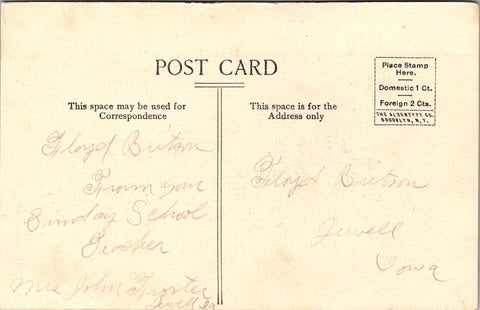 POST CARD
This space may be used for
Correspondence
This space is for the
Address only
Place Stamp
Here.
Domestic 1 Ct.
Foreign 2 Cts.
THE ALBERTYPE CO.
BROOKLYN, N.Y.
Floyd Britson
From your
Sunday School
Teacher
Mrs John
Jewell Ia
Floyd Britson
Jewell
Iowa